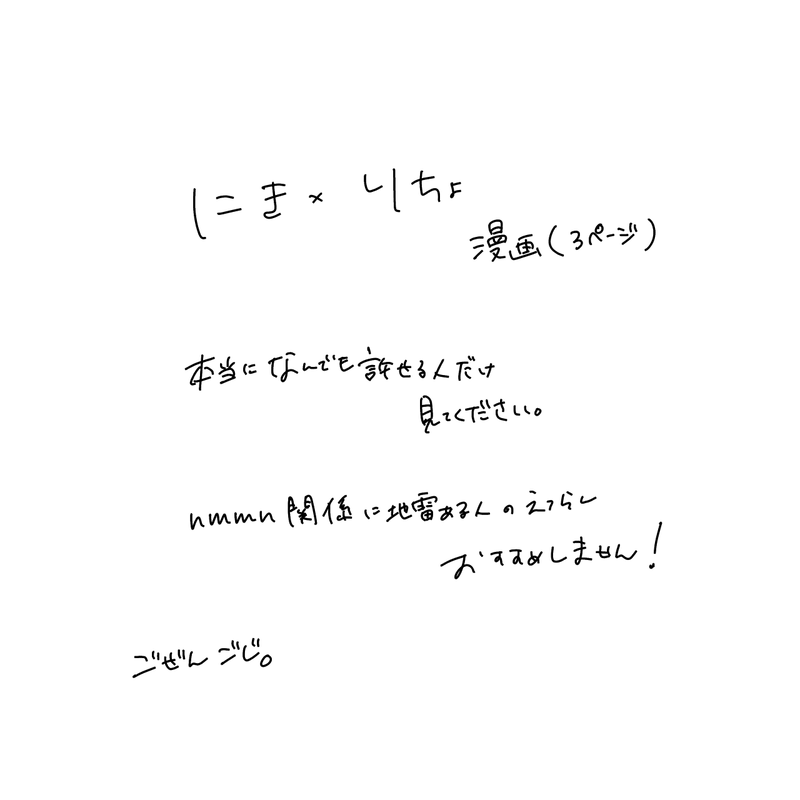 にき×りちょ
漫画(3ページ)
本当になんでも許せる人だけ
見てください。
nmmn関係に地雷ある人のえつらん
おすすめしません!
ごぜんごじ。